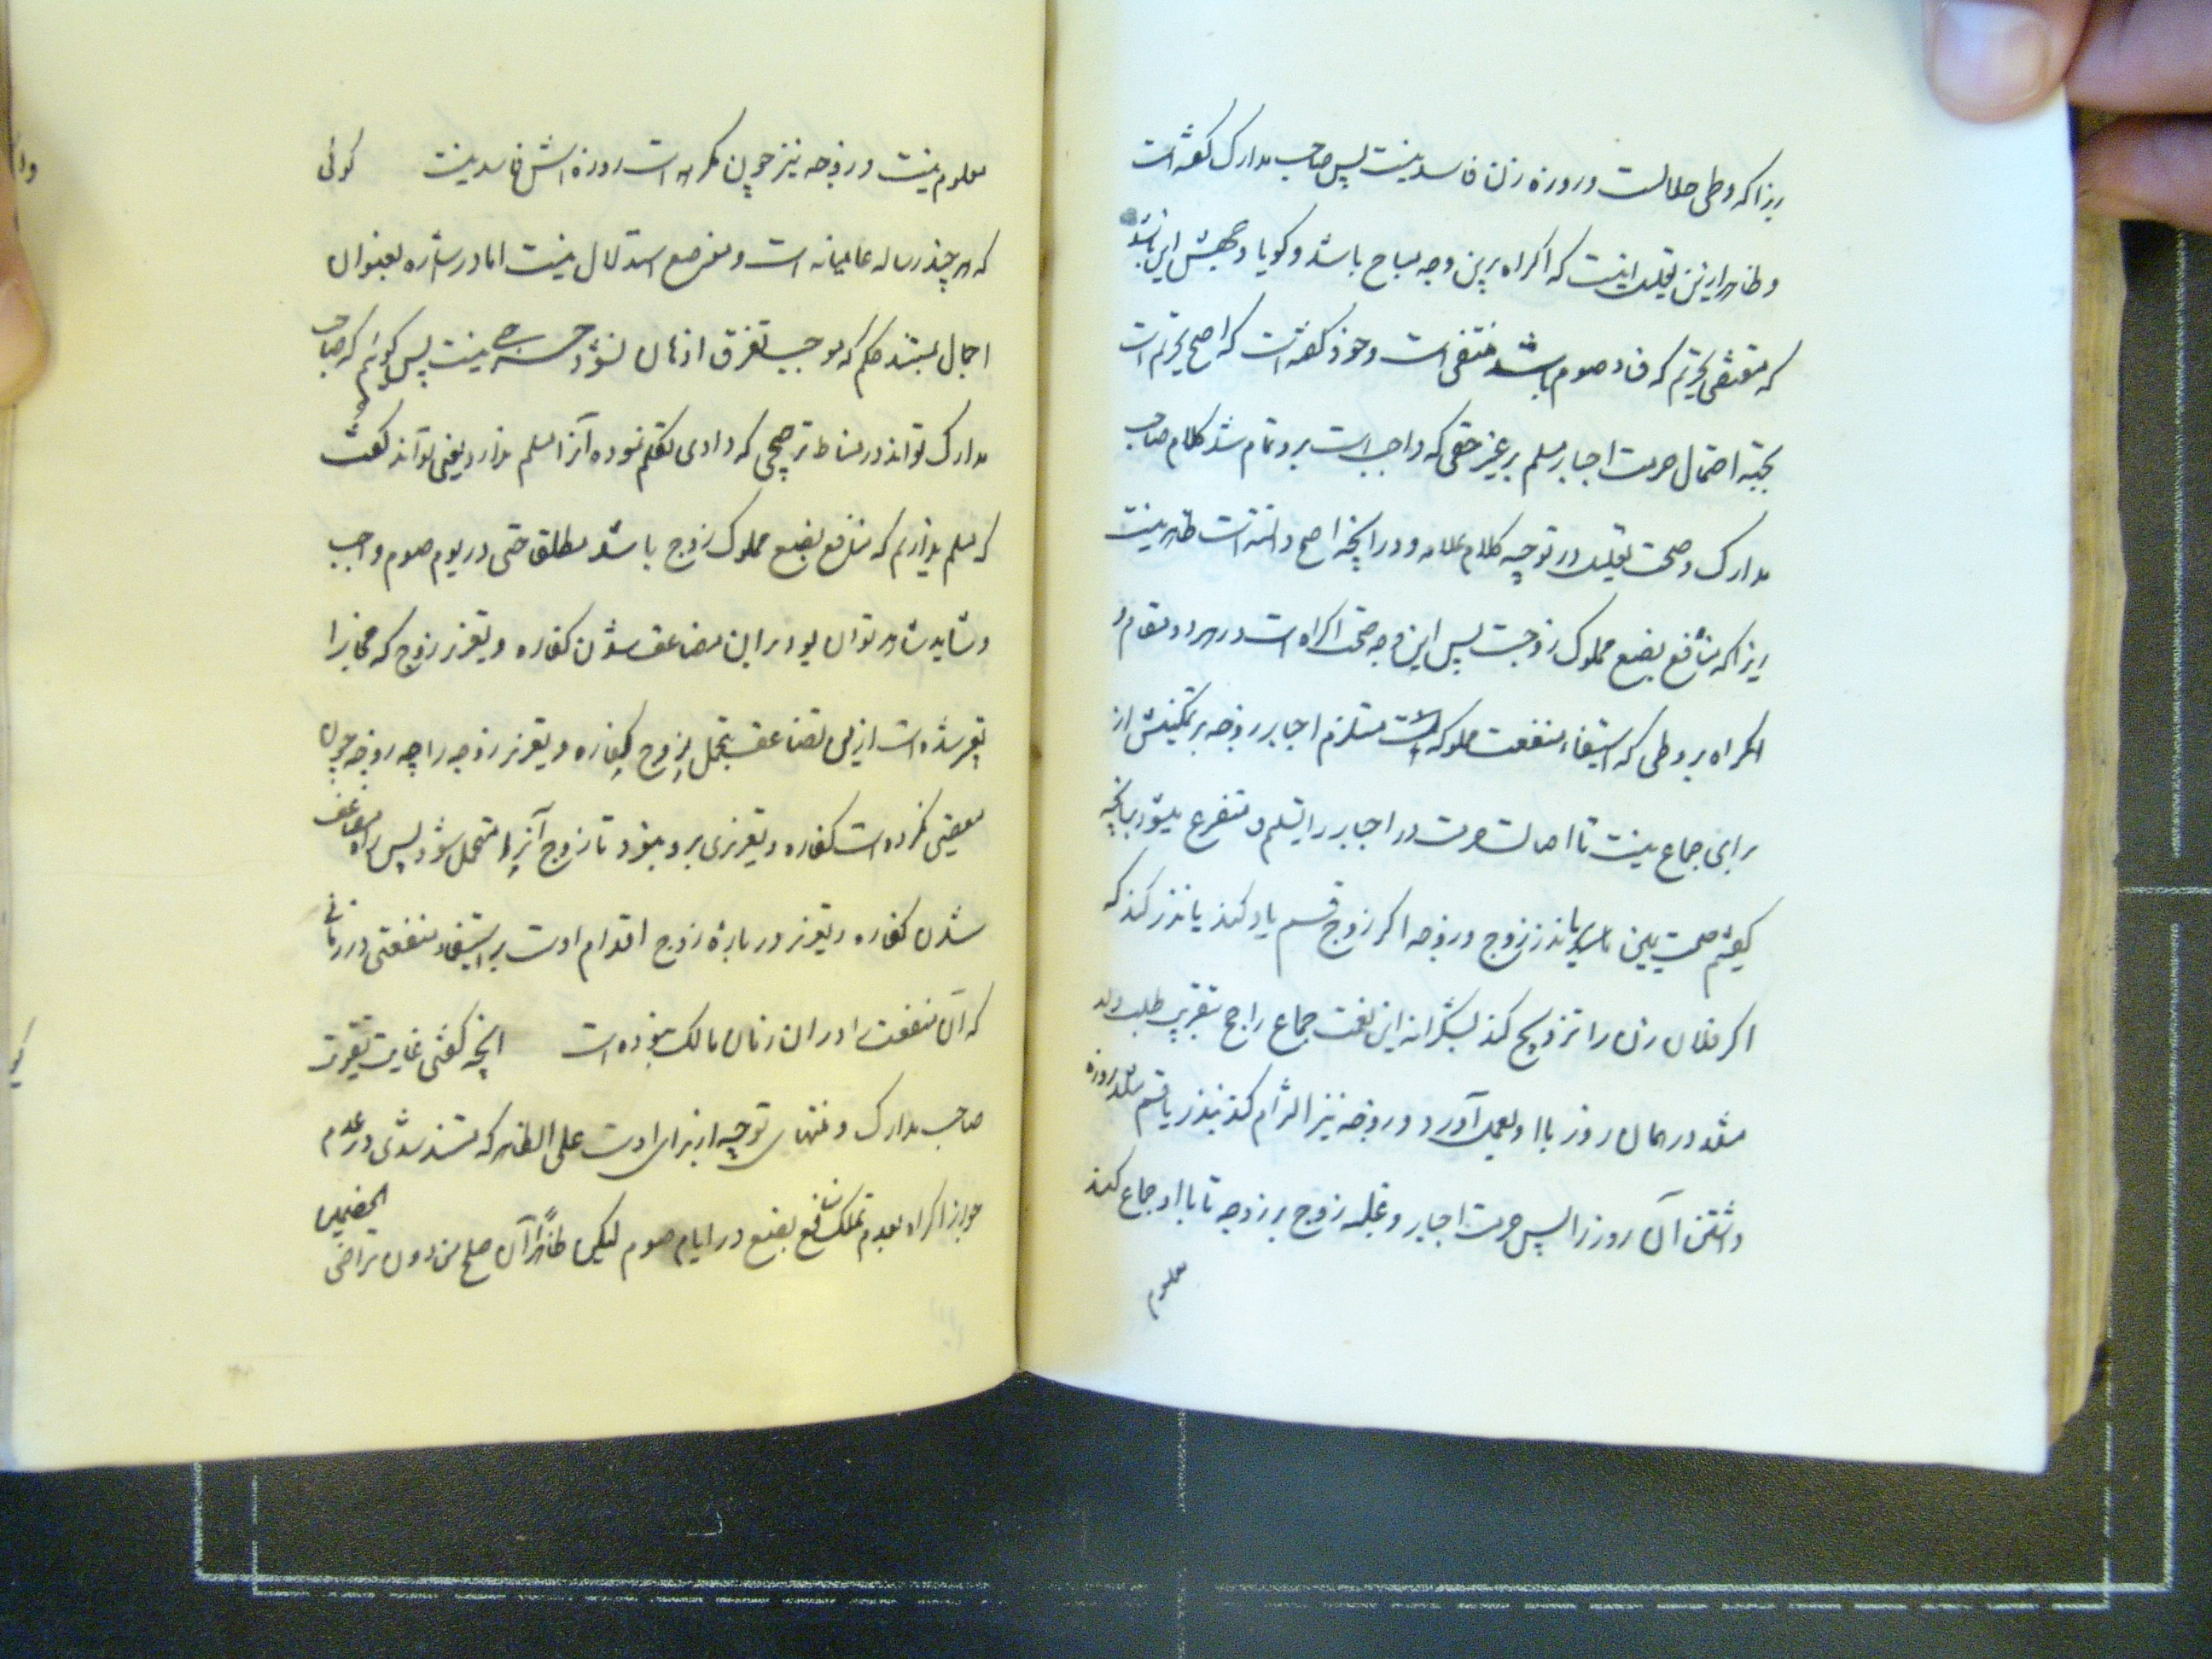 زیرا که وطی حلالست و روزه زن فاسد نیست پس صاحب مدارک گفته است
و ظاهر ازین تعلیل اینست که اکراه برین وجه مباح باشد و کویا وجهش این باشد
که مقتضی تحریم که فساد صوم باشد منتفی است و خود گفته است که اصح تحریم است
بجهة احتمال حرمت اجبار مسلم بر غیر حقی که واجب است برو تمام شد کلام صاحب
مدارک و صحت تعلیل در توجیه کلام علامه و در آنچه اصح دانسته است ظاهر نیست
زیرا که منافع بضع مملوک زوجست پس این وجه صحت اکراه است در هر دو مقام و
اکراه بر وطی که استیفاء منفعت مملوکه است مستلزم اجبار زوجه بر تمکینش از
برای جماع نیست تا اصالت حرمت در اجبار را تسلم و متفرع میشود بآنچه
کفتیم صحت یمین یا نذر زوج و زوجه اگر زوج قسم یاد کند یا نذر کند که
اگر فلان زن را تزویج کند بشکرانه این نعمت جماع راجح بتقریب طلب ولد
مثلا در همان روز با او بعمل آورد و زوجه نیز الزام کند بنذر یا قسم مثلا روزه
داشتن آن روز را پس حرمت اجبار و غلبه زوج بر زوجه تا با او جماع کند
معلوم
معلوم نیست و زوجه نیز چون مکره است روزه اش فاسد نیست کوئی
که هر چند رساله عامیانه است و موضع استدلال نیست اما در اشاره بعنوان
اجمال بمستند حکم که موجب تفرق اذهان نشود حرجی نیست پس کوئیم که صاحب
مدارک تواند در مناط ترجیحی که دادی تکلم نموده آنرا مسلم ندارد یعنی تواند گفت
که مسلم نداریم که منافع بضع مملوک زوج باشد مطلق حتی در یوم صوم واجب
و شاید شاهد توان بود برای این مضاعف شدن کفاره و تعزیر زوج که مجازا
تعبیر شده است ازین تضاعف بتحمل زوج کفاره و تعزیر زوجه را چه زوجه چون
معصیتی نکرده است کفاره و تعزیری برو نبود تا زوج آنرا متحمل شود پس مضاعف
شدن کفاره و تعزیر در باره زوج اقدام اوست بر استیفاء منفعتی در زمانی
که آن منفعت را در آن زمان مالک نبوده است آنچه کفتی غایت تقویت
صاحب مدارک و منتهای توجیه از برای اوست علی الظاهر که مستند شدی در عدم
جواز اکراه بعدم تملک منافع بضع در ایام صوم لیکن ظاهرا آن صلح من دون تراضی
الخصمین